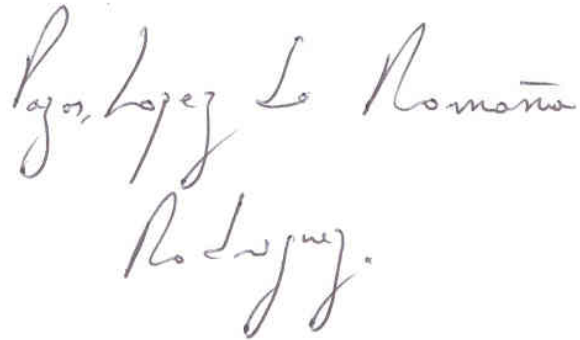 Pazos, Lopez de Romaña
Rodriguez.